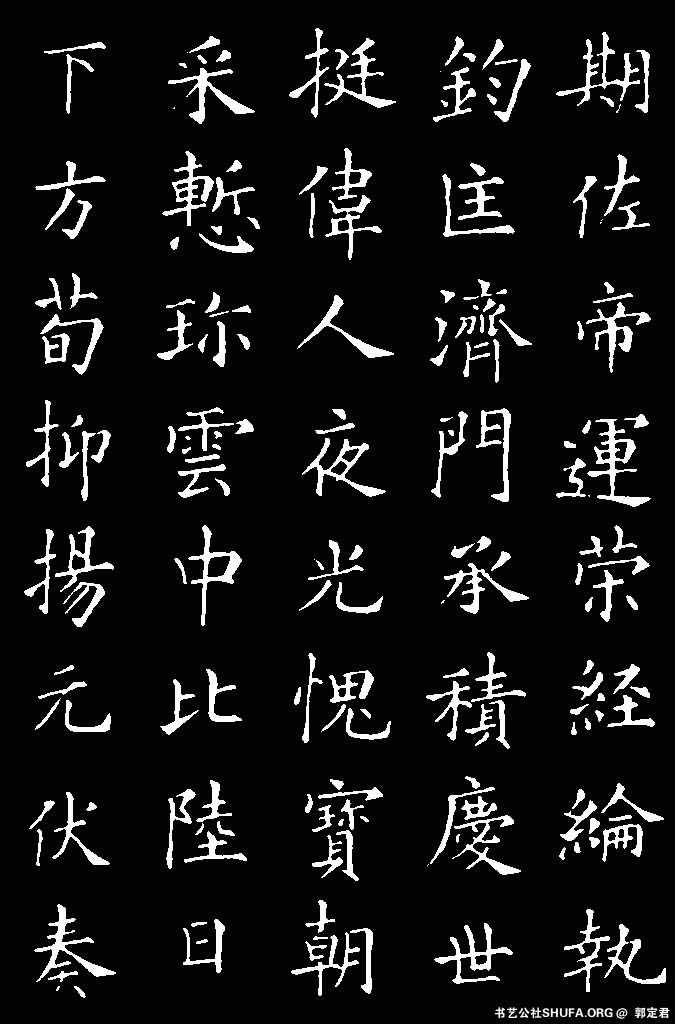 期佐帝運荣経綸執
鈞匡濟門承積慶世
挺偉人夜光愧寶朝
采慙珎雲中比陸日
下方荀抑揚元伏奏
书艺公社SHUFA.ORG @ 郭定君